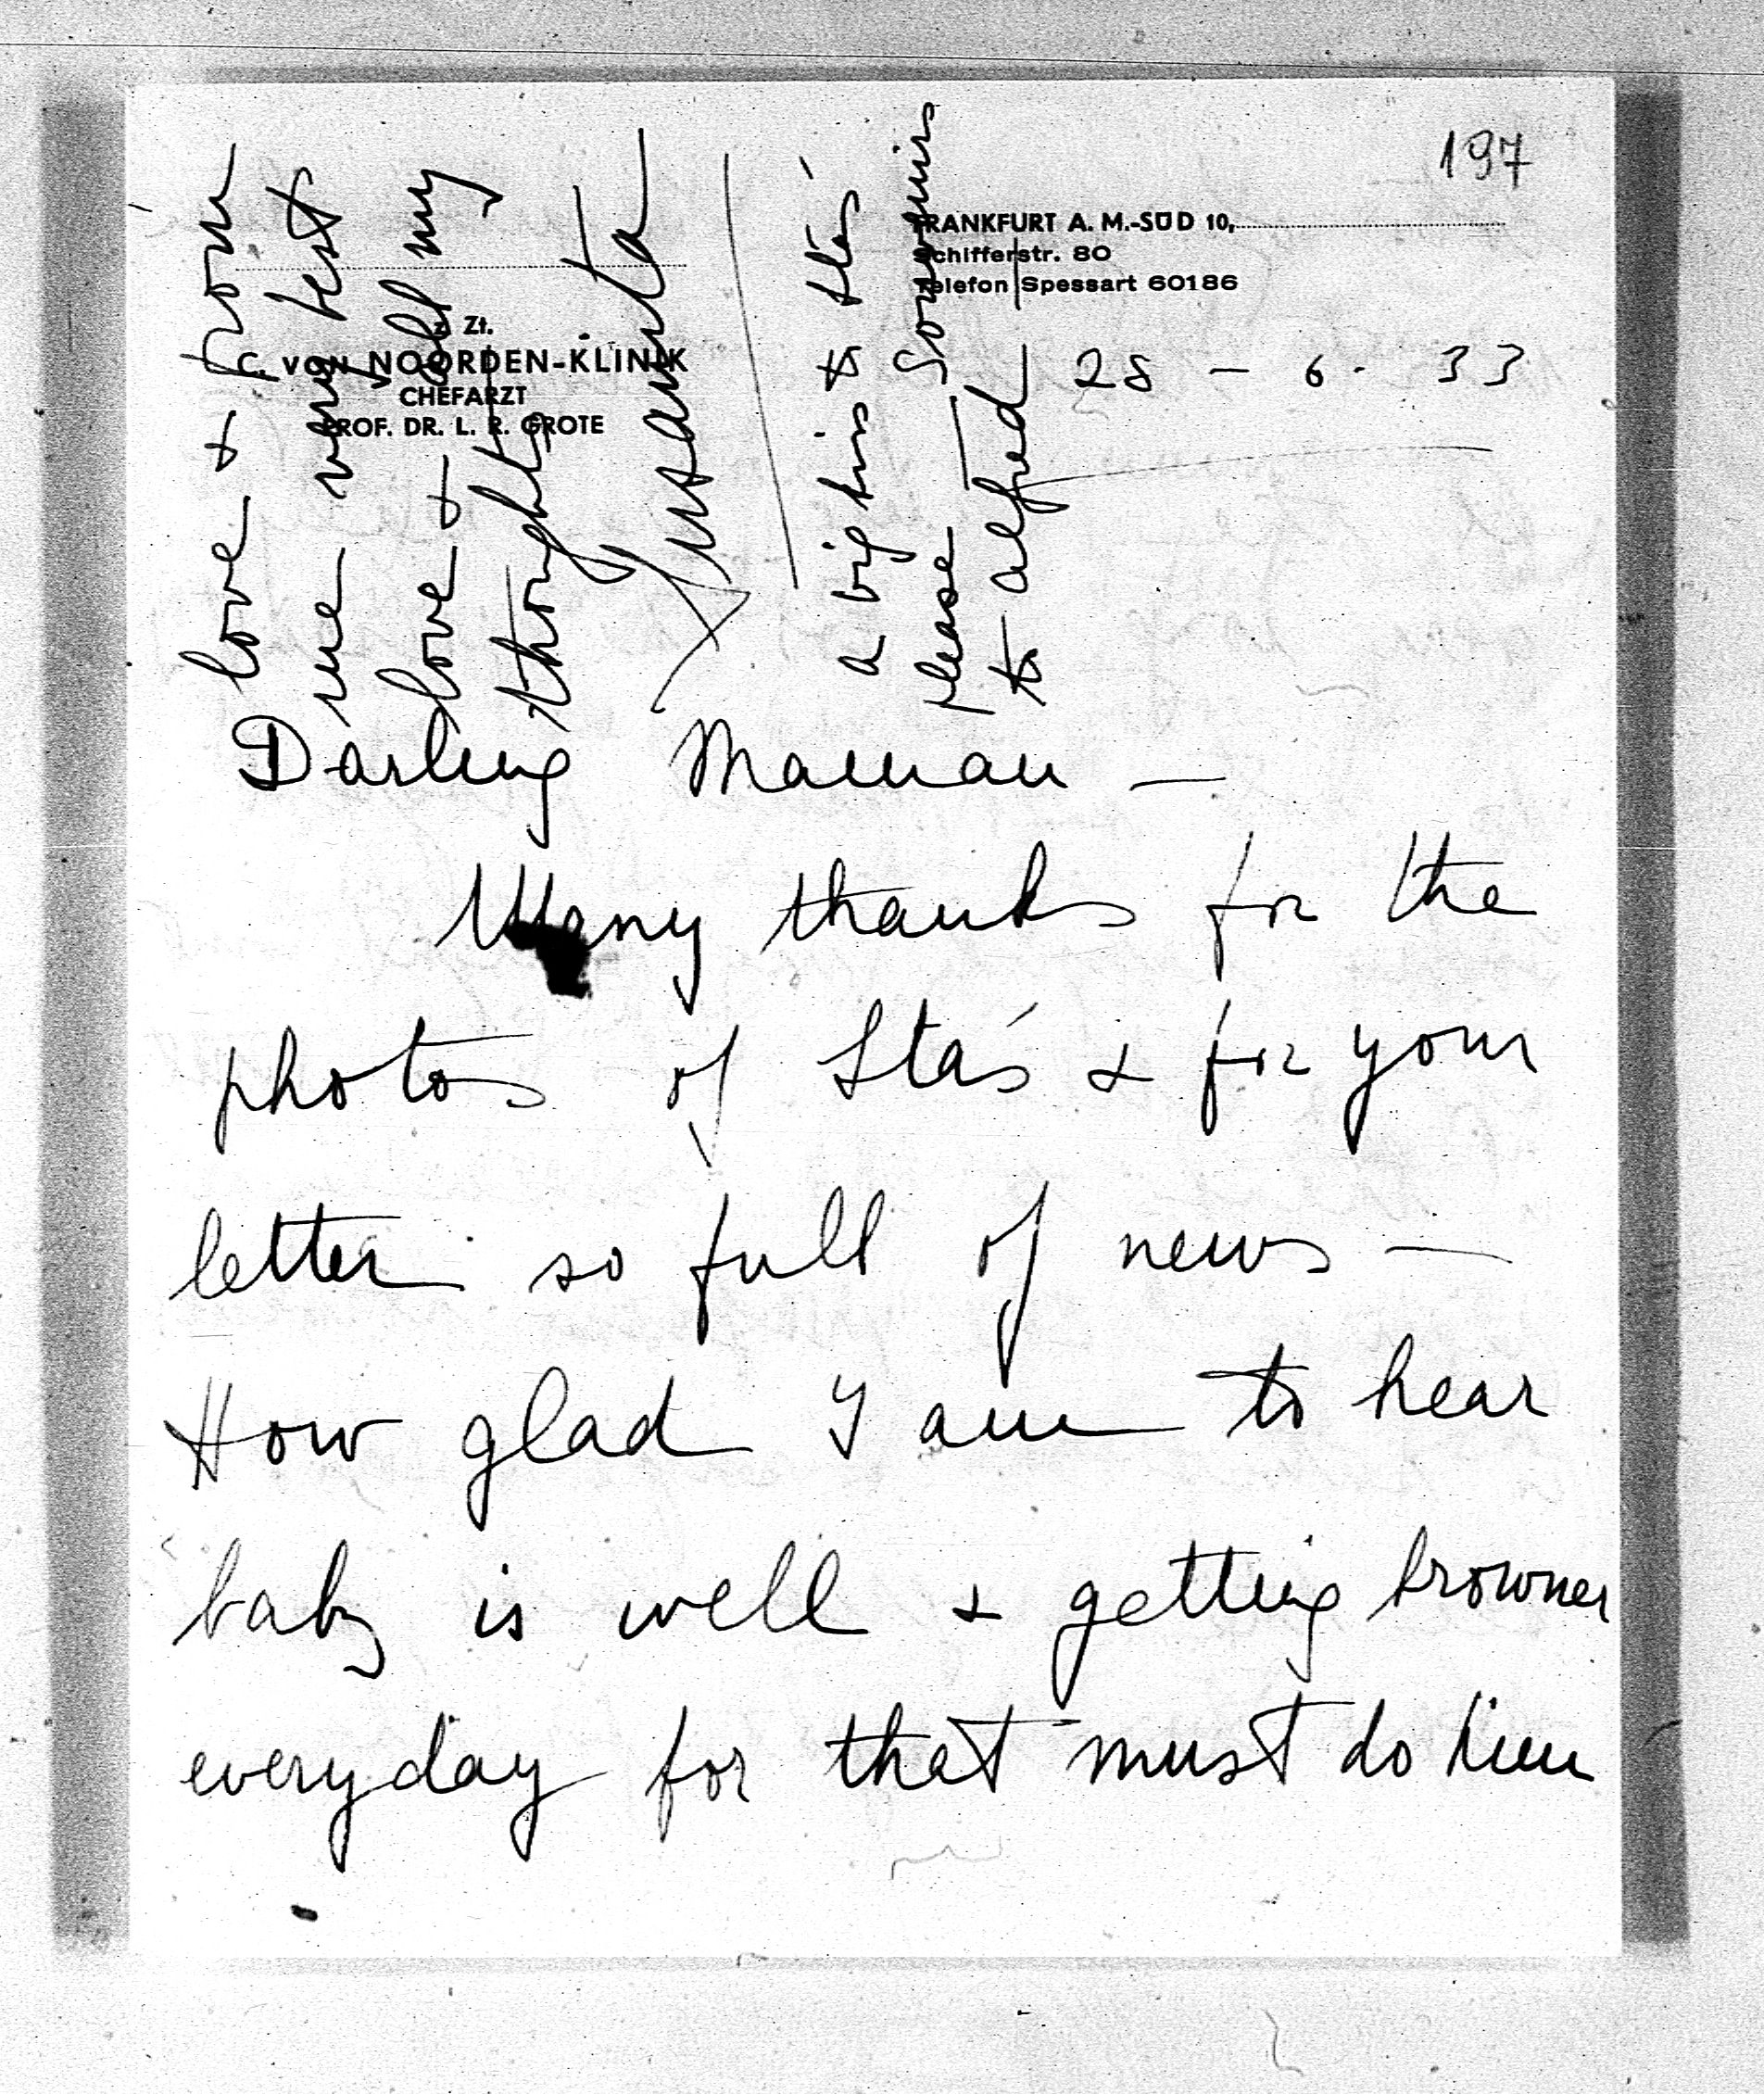 197
FRANKFURT A. M.-SÜD 10,
Schifferstr. 80
Telefon Spessart 60186
z. Zt.
C. VON NOORDEN-KLINIK
CHEFARZT
PROF. DR. L. R. GROTE
28 - 6 - 33
Darling Maman —
Many thanks for the
photos of Staś & for your
letter so full of news —
How glad I am to hear
baby is well & getting browner
everyday for that must do him
love & from
me very best
love & all my
thoughts
a big kiss to Staś
please Souvenirs
to Alfred